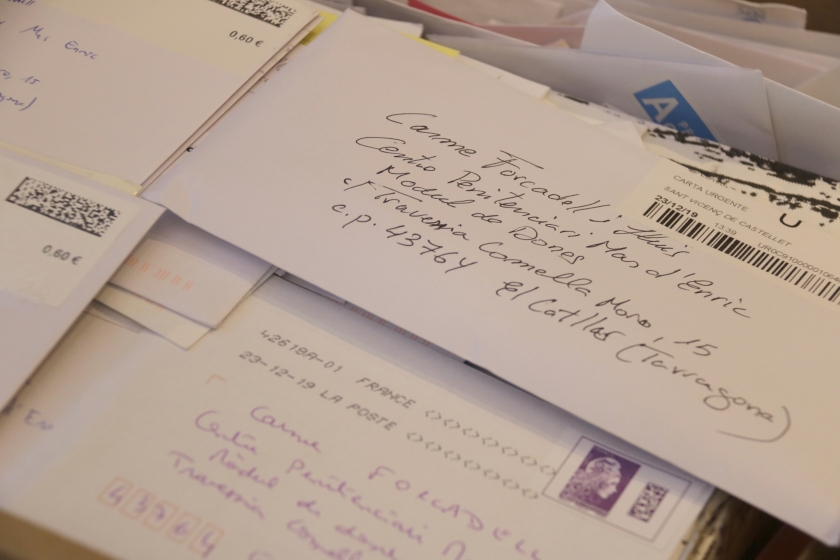 Mas Enric
15
0,60 €
0,60 €
A
Carme Forcadell i Lluís
Centre Penitenciari Mas d'Enric
Mòdul de Dones
c/ Travessia Comella Moro, 15
c.p. 43764 El Catllar (Tarragona)
CARTA URGENTE
SANT VICENÇ DE CASTELLET
23/12/19 13:39
U
42618A-01 FRANCE
23-12-19 LA POSTE
Carme FORCADELL
Centre Penitenciari M
Mòdul de dones
Travessia Comell
43764